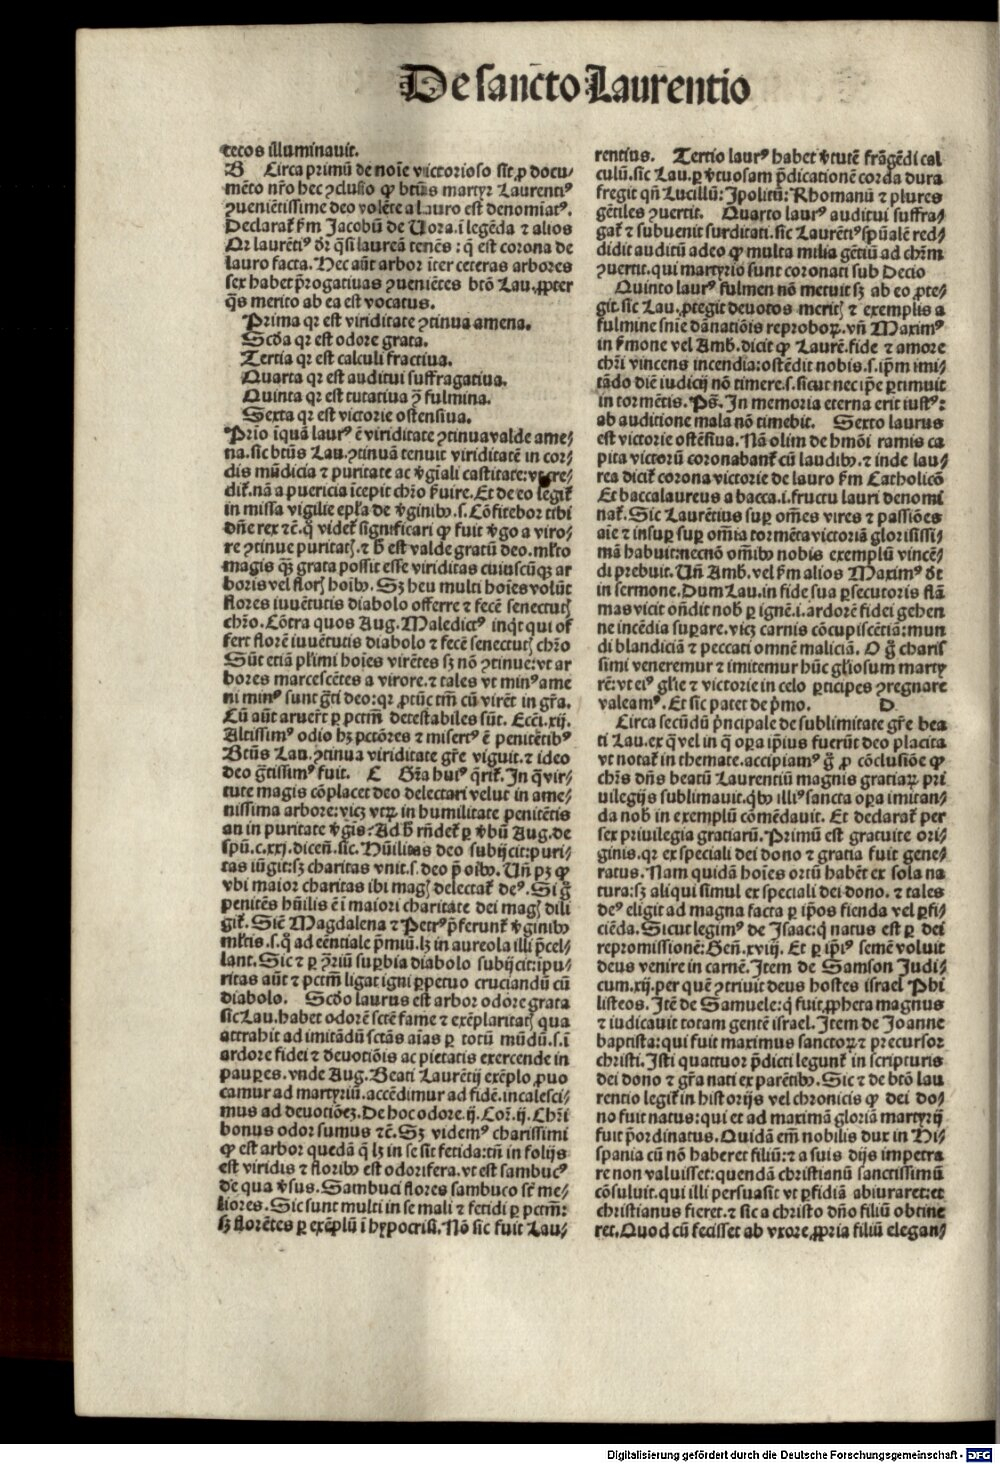 De sancto Laurentio
tecos illuminauit.
B Circa primū de noīe victorioso sit ꝓ docu⸗
mēto nr̄o hec ꝯclusio ꝙ btūs martyr Laurentiꝰ
ꝯueniētissime deo volēte a lauro est denomīatꝰ.
Declarat̄ fm̄ Jacobū de Uora. ī legēda ⁊ alios
Qr laurētiꝰ dr̄ q̄si laureā tenēs: q̄ est corona de
lauro facta. Hec aūt arbor īter ceteras arbores
sex habet p̄rogatiuas ꝯueniētes btō Lau. ꝓpter
q̄s merito ab ea est vocatus.
Prima qr est viriditate ꝯtinua amena.
Scd̄a qr est odore grata.
Tertia qr est calculi fractiua.
Quarta qr est auditui suffragatiua.
Quinta qr est tutatiua ꝯ̄ fulmina.
Sexta qr est victorie ostensiua.
Prīo īquā laurꝰ ē viriditate ꝯtinua valde ame⸗
na. sic btūs Lau. ꝯtinuā tenuit viriditatē in cor⸗
dis mūdicia ⁊ puritate ac v̄gīali castitate: vt cre⸗
dit̄. nā a puericia īcepit chr̄o ẜuire. Et de eo legit̄
in missa vigilie ep̄la de v̄ginibꝰ. s. Cōfitebor tibi
dn̄e rex ⁊c̄. q̄ videt̄ significari ꝙ fuit v̄go a viro⸗
re ꝯtinue puritatꝭ. ⁊ h̄ est valde gratū deo. ml̄to
magis qꝫ grata possit esse viriditas cuiuscūqꝫ ar
boris vel florꝭ hoībꝰ. Sꝫ heu multi hoīes volūt
flores iuuētutis diabolo offerre ⁊ fecē senectutꝭ
chr̄o. Cōtra quos Aug. Maledictꝰ inqt qui of
fert florē iuuētutis diabolo ⁊ fecē senectutꝭ chr̄o
Sūt etiā pl̄imi hoīes virētes sꝫ nō ꝯtinue: vt ar
bores marcescētes a virore. ⁊ tales vt minꝰ ame
ni minꝰ sunt gr̄ti deo: qr ꝓtūc tm̄ cū virēt in gr̄a.
Cū aūt aruer̄t ꝑ pctm̄ detestabiles sūt. Ecci. xij.
Altissimꝰ odio hꝫ pctōres ⁊ misertꝰ ē penitētibꝰ
Btūs Lau. ꝯtinua viriditate gr̄e viguit. ⁊ ideo
deo gr̄tissimꝰ fuit. C Gr̄a huiꝰ q̄rit̄. In q̄ vir⸗
tute magis cōplacet deo delectari velut in ame⸗
nissima arbore: vicꝫ vtꝝ in humilitate penitētis
an in puritate v̄gīs: Ad h̄ rn̄det̄ ꝑ v̄bū Aug. de
spū. c. xxj. dicen̄. sic. Hūilitas deo subijcit: puri⸗
tas iūgit: sꝫ charitas vnit. s. deo p̄ oībꝰ. Un̄ pꝫ ꝙ
vbi maior charitas ibi magꝭ delectat̄ deꝰ. Si g̊
penitēs hūilis ē ī maiori charitate dei magꝭ dili
git̄. Sic̄ Magdalena ⁊ Petrꝰ p̄ferunt̄ v̄ginibꝰ
ml̄tis. s. q̄ ad eēntiale p̄miū. lꝫ in aureola illi p̄cel⸗
lant. Sic ⁊ ꝑ ꝯ̄riū suꝑbia diabolo subijcit: īpu⸗
ritas aūt ⁊ pctm̄ ligat igni ꝑpetuo cruciandū cū
diabolo. Scd̄o laurus est arbor odore grata
sic Lau. habet odorē sctē fame ⁊ exēplaritatꝭ qua
attrahit ad imitādū sctās aīas ꝑ totū mūdū. s. ī
ardore fidei ⁊ deuotiōis ac pietatis exercende in
pauꝑes. vnde Aug. Beati Laurētij exēplo ꝓuo
camur ad martyriū. accēdimur ad fidē. incalesci⸗
mus ad deuotiōeꝫ. De hoc odore. ij. Cor̄. ij. Chr̄i
bonus odor sumus ⁊c̄. Sꝫ videmꝰ charissimi
ꝙ est arbor quedā q̄ lꝫ in se sit fetida: tn̄ in folijs
est viridis ⁊ floribꝰ est odorifera. vt est sambucꝰ
de qua v̄sus. Sambuci flores sambuco st̄ me⸗
liores. Sic sunt multi in se mali ⁊ fetidi ꝑ pctm̄:
sꝫ florētes ꝑ exēplū ī hypocrisi. Nō sic fuit Lau⸗
rentius. Tertio laurꝰ habet v̄tutē frāgēdi cal
culū. sic Lau. ꝑ v̄tuosam p̄dicationē corda dura
fregit qn̄ Lucillū: Jpolitū: Rhomanū ⁊ plures
gētiles ꝯuertit. Quarto laurꝰ auditui suffra⸗
gat̄ ⁊ subuenit surditati. sic Laurētiꝰ spūalē red⸗
didit auditū adeo ꝙ multa milia gētiū ad chr̄m
ꝯuertit. qui martyrio sunt coronati sub Decio
Quinto laurꝰ fulmen nō metuit sꝫ ab eo ꝓte⸗
git. sic Lau. ꝓtegit deuotos meritꝭ ⁊ exemplis a
fulmine sn̄ie dānatiōis reproboꝝ. vn̄ Maximꝰ
in ẜmone vel Amb. dicit ꝙ Laurē. fide ⁊ amore
chr̄i vincens incendia: ostēdit nobis. s. ip̄m imi⸗
tādo diē iudicij nō timere. s. sicut nec ip̄e ꝑtimuit
in tormētis. Ps̄. In memoria eterna erit iustꝰ:
ab auditione mala nō timebit. Sexto laurus
est victorie ostēsiua. Nā olim de hmōi ramis ca
pita victorū coronabant̄ cū laudibꝰ. ⁊ inde lau⸗
rea dicit̄ corona victorie de lauro fm̄ Catholicō
Et baccalaureus a bacca. i. fructu lauri denomi
nat̄. Sic Laurētius suꝑ om̄es vires ⁊ passiōes
aīe ⁊ insuꝑ suꝑ om̄ia tormēta victoriā glorisissi⸗
mā habuit: necnō om̄ibꝰ nobis exemplū vincē⸗
di prebuit. Un̄ Amb. vel fm̄ alios Maximꝰ dt̄
in sermone. Dum Lau. in fide sua ꝑsecutoris flā
mas vicit on̄dit nob̄ ꝑ ignē. i. ardorē fidei gehen
ne incēdia suꝑare. vicꝫ carnis cōcupiscētiā: mun
di blandiciā ⁊ peccati omnē maliciā. O g̊ charis
simi veneremur ⁊ imitemur hūc gl̄iosum marty
rē: vt eiꝰ gl̄ie ⁊ victorie in celo ꝑticipes ꝯregnare
valeamꝰ. Et sic patet de p̄mo. D
Circa secūdū p̄ncipale de sublimitate gr̄e bea
ti Lau. ex q̄ vel in q̄ oꝑa ip̄ius fuerūt deo placita
vt notat̄ in themate. accipiamꝰ g̊ ꝓ cōclusiōe ꝙ
chr̄s dn̄s beatū Laurentiū magnis gratiaꝝ pri
uilegijs sublimauit. q̄bꝰ illiꝰ sancta oꝑa imitan⸗
da nob̄ in exemplū cōmēdauit. Et declarat̄ per
sex priuilegia gratiarū. Primū est gratuite ori⸗
ginis. qr ex speciali dei dono ⁊ gratia fuit gene⸗
ratus. Nam quidā hoīes ortū habēt ex sola na
tura: sꝫ aliqui simul ex speciali dei dono. ⁊ tales
deꝰ eligit ad magna facta ꝑ ip̄os fienda vel ꝑfi⸗
ciēda. Sicut legimꝰ de Isaac: q̄ natus est ꝑ dei
repromissionē: Gen̄. xviij. Et ꝑ ip̄iꝰ semē voluit
deus venire in carnē. Item de Samson Judi⸗
cum. xij. per quē ꝯtriuit deus hostes israel Phi
listeos. Itē de Samuele: q̄ fuit ꝓpheta magnus
⁊ iudicauit totam gentē israel. Item de Joanne
baptista: qui fuit maximus sanctoꝝ ⁊ precursor
christi. Isti quattuor p̄dicti legunt̄ in scripturis
dei dono ⁊ gr̄a nati ex parētibꝰ. Sic ⁊ de btō lau
rentio legit̄ in historijs vel chronicis ꝙ dei do⸗
no fuit natus: qui et ad maximā gloriā martyrij
fuit p̄ordinatus. Quidā em̄ nobilis dux in Hi⸗
spania cū nō haberet filiū: ⁊ a suis dijs impetra
re non valuisset: quendā christianū sanctissimū
cōsuluit. qui illi persuasit vt ꝑfidiā abiuraret: et
christianus fieret. ⁊ sic a christo dn̄o filiū obtine
ret. Quod cū fecisset ab vxore ꝓpria filiū elegan⸗
Digitalisierung gefördert durch die Deutsche Forschungsgemeinschaft - DFG